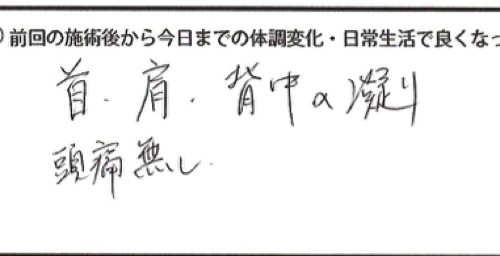 )前回の施術後から今日までの体調変化・日常生活で良くなっ
首・肩・背中の凝り
頭痛無し.